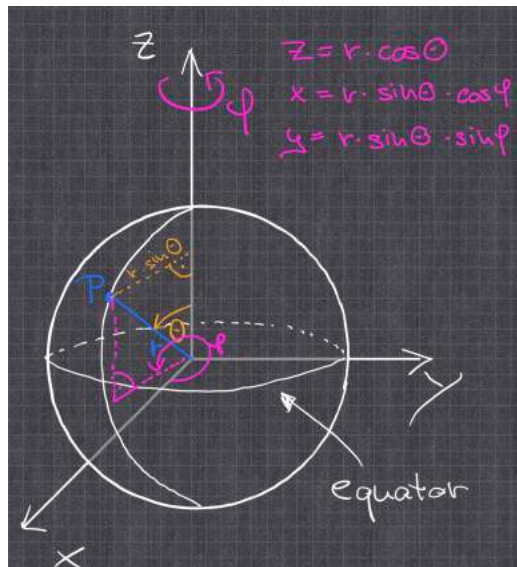 z
φ
z = r · cosΘ
x = r · sinΘ · cosφ
y = r · sinΘ · sinφ
r · sinΘ
P
Θ
r
φ
y
equator
x